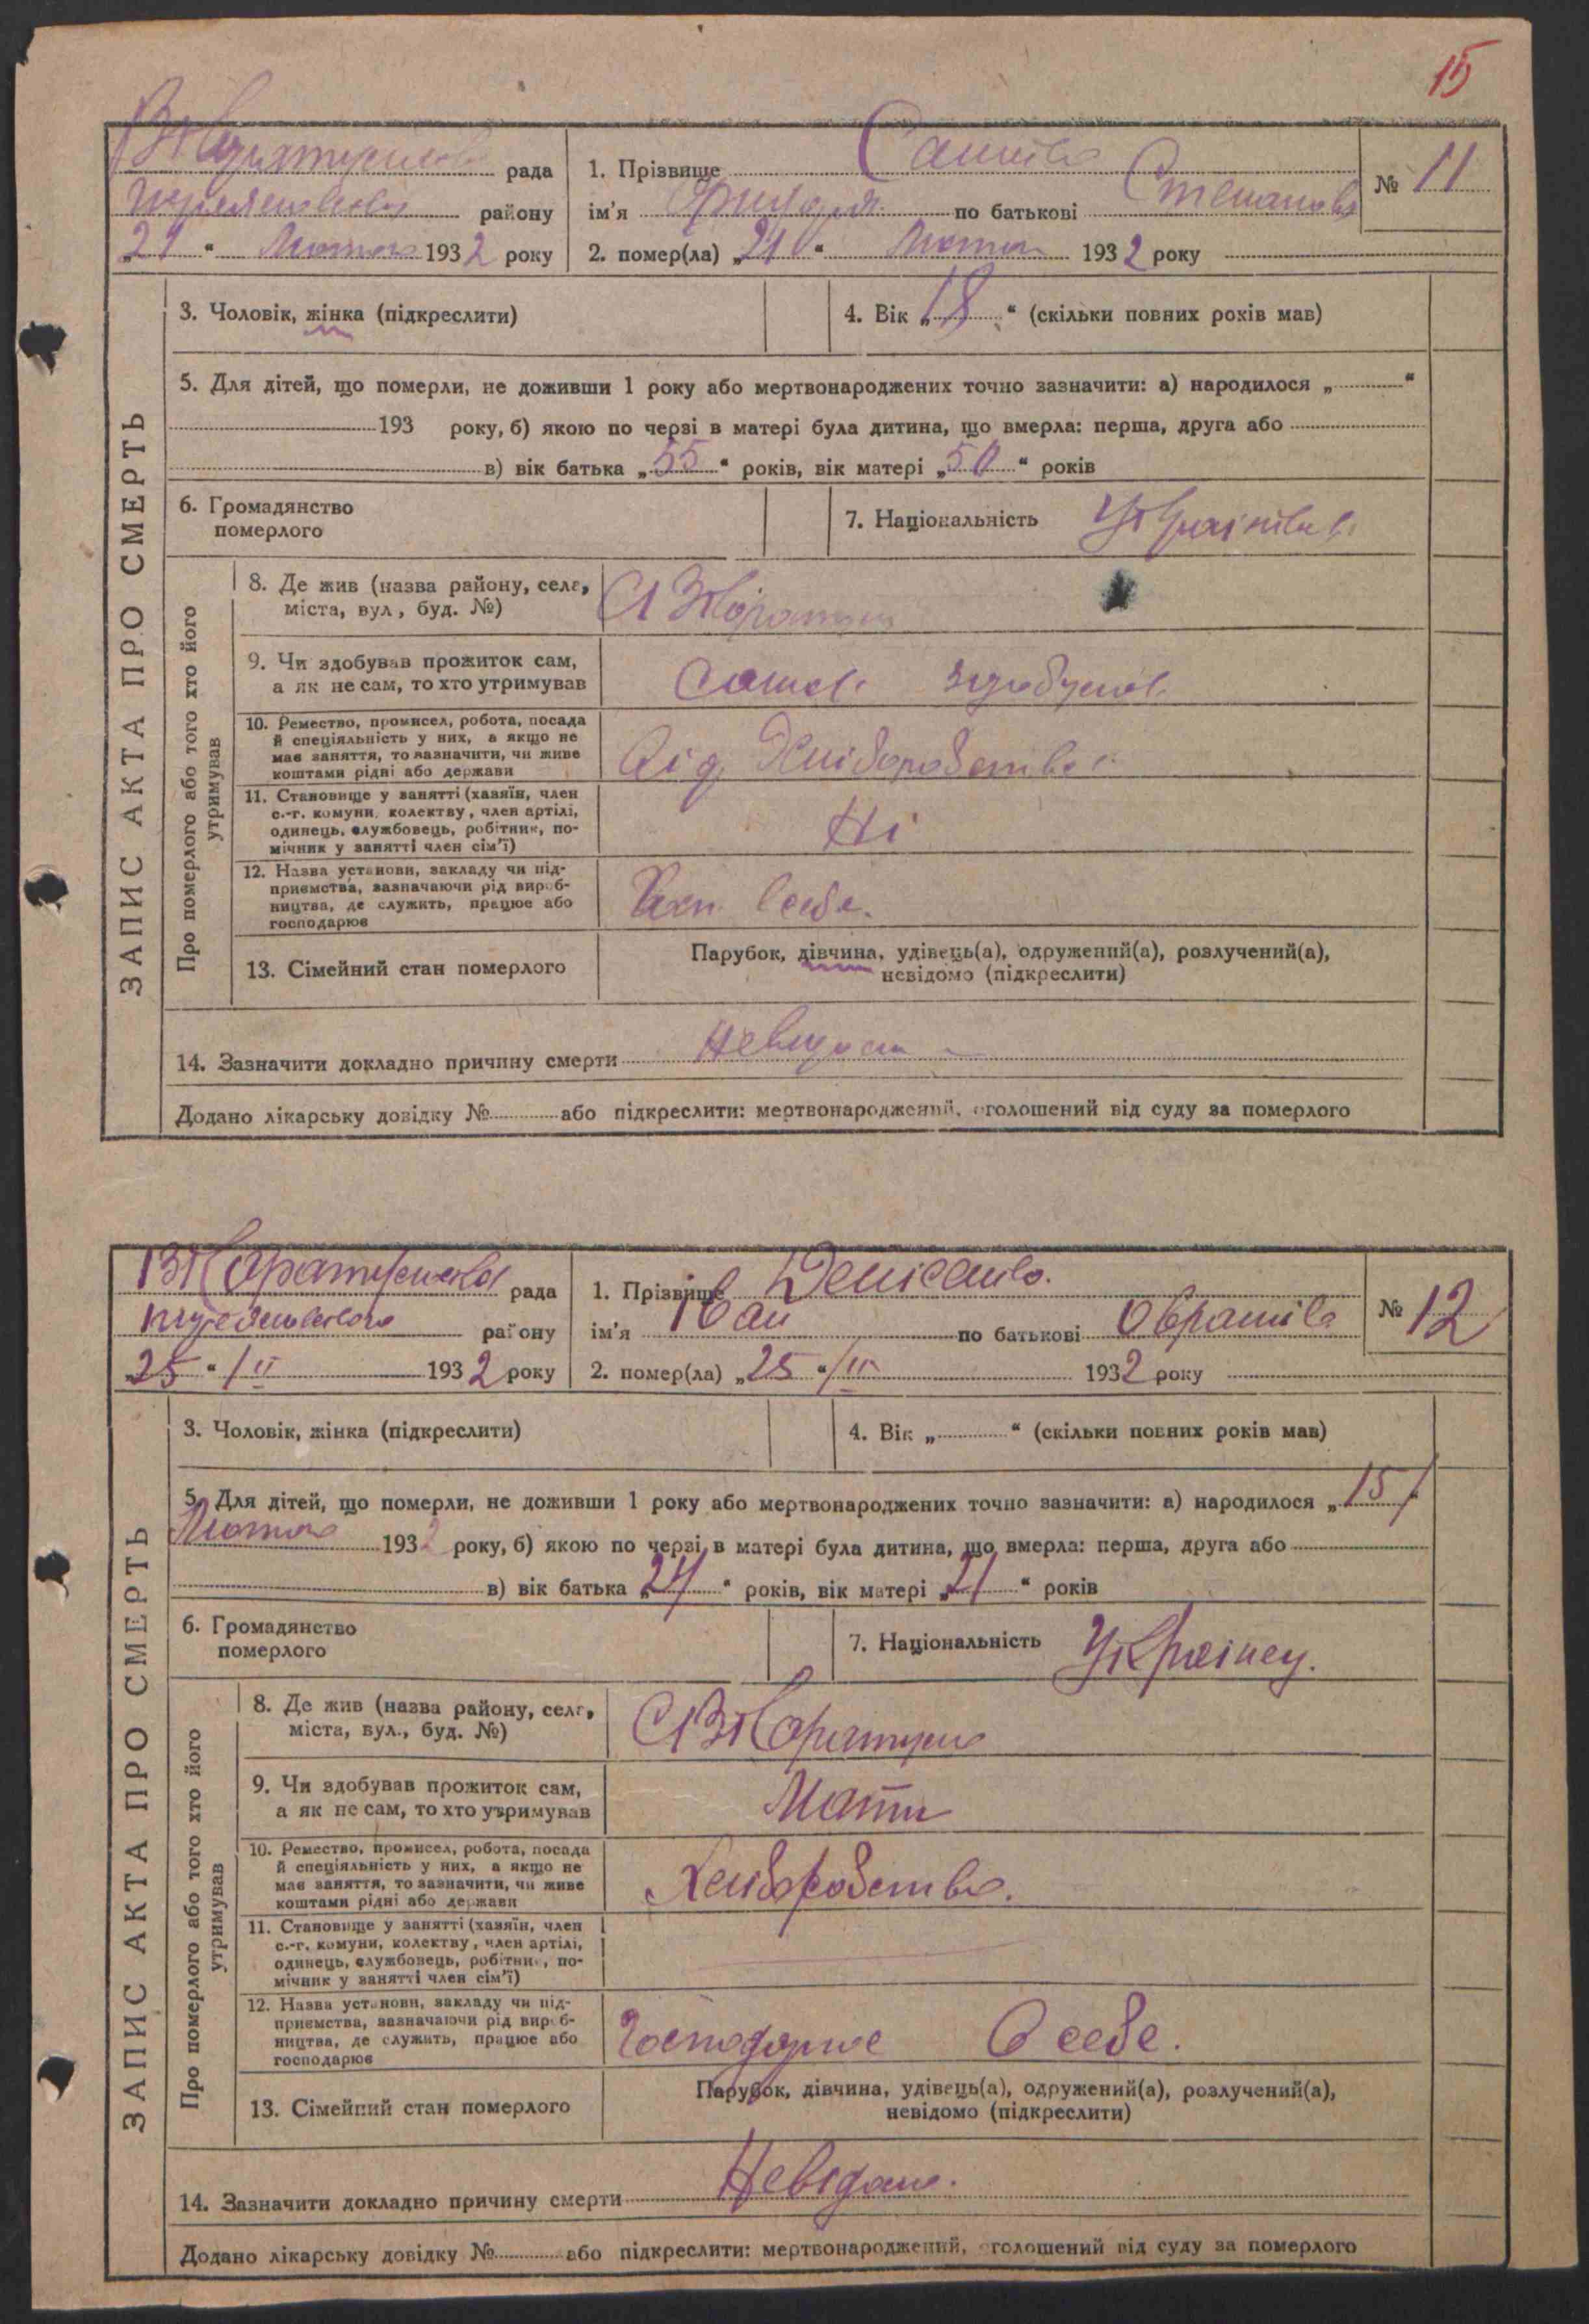 15
рада
району
21 “ Лютого 1932 року
1. Прізвище
ім'я по батькові Степанова
2. помер(ла) „21“ Лютого 1932 року
№ 11
ЗАПИС АКТА ПРО СМЕРТЬ
3. Чоловік, жінка (підкреслити)
4. Вік „18“ (скільки повних років мав)
5. Для дітей, що померли, не доживши 1 року або мертвонароджених точно зазначити: а) народилося „ “
193 року, б) якою по черзі в матері була дитина, що вмерла: перша, друга або
в) вік батька „55“ років, вік матері „50“ років
6. Громадянство
померлого
7. Національність
Про померлого або того хто його
утримував
8. Де жив (назва району, села,
міста, вул, буд. №)
9. Чи здобував прожиток сам,
а як не сам, то хто утримував
10. Ремество, промисел, робота, посада
й спеціяльність у них, а якщо не
має заняття, то зазначити, чи живе
коштами рідні або держави
Від Хліборобства
11. Становище у занятті (хазяїн, член
с.-г. комуни, колектву, член артілі,
одинець, службовець, робітник, по-
мічник у занятті член сім'ї)
Ні
12. Назва установи, закладу чи під-
приємства, зазначаючи рід вироб-
ництва, де служить, працює або
господарює
себе.
13. Сімейний стан померлого
Парубок, дівчина, удівець(а), одружений(а), розлучений(а),
невідомо (підкреслити)
14. Зазначити докладно причину смерти
Додано лікарську довідку № або підкреслити: мертвонароджений, оголошений від суду за померлого
рада
району
„25“ /ІІ 1932 року
1. Прізвище Денисенко.
ім'я Іван по батькові
2. помер(ла) „25“ /ІІ 1932 року
№ 12
ЗАПИС АКТА ПРО СМЕРТЬ
3. Чоловік, жінка (підкреслити)
4. Вік „ “ (скільки повних років мав)
5. Для дітей, що померли, не доживши 1 року або мертвонароджених точно зазначити: а) народилося „15“
Лютого 1932 року, б) якою по черзі в матері була дитина, що вмерла: перша, друга або
в) вік батька „24“ років, вік матері „21“ років
6. Громадянство
померлого
7. Національність Українец.
Про померлого або того хто його
утримував
8. Де жив (назва району, села,
міста, вул., буд. №)
9. Чи здобував прожиток сам,
а як не сам, то хто утримував
Мати
10. Ремество, промисел, робота, посада
й спеціяльність у них, а якщо не
має заняття, то зазначити, чи живе
коштами рідні або держави
Хліборобство.
11. Становище у занятті (хазяїн, член
с.-г. комуни, колектву, член артілі,
одинець, службовець, робітник, по-
мічник у занятті член сім'ї)
12. Назва установи, закладу чи під-
приємства, зазначаючи рід вироб-
ництва, де служить, працює або
господарює
Господарює в себе.
13. Сімейний стан померлого
Парубок, дівчина, удівець(а), одружений(а), розлучений(а),
невідомо (підкреслити)
14. Зазначити докладно причину смерти Невідомо.
Додано лікарську довідку № або підкреслити: мертвонароджений, оголошений від суду за померлого